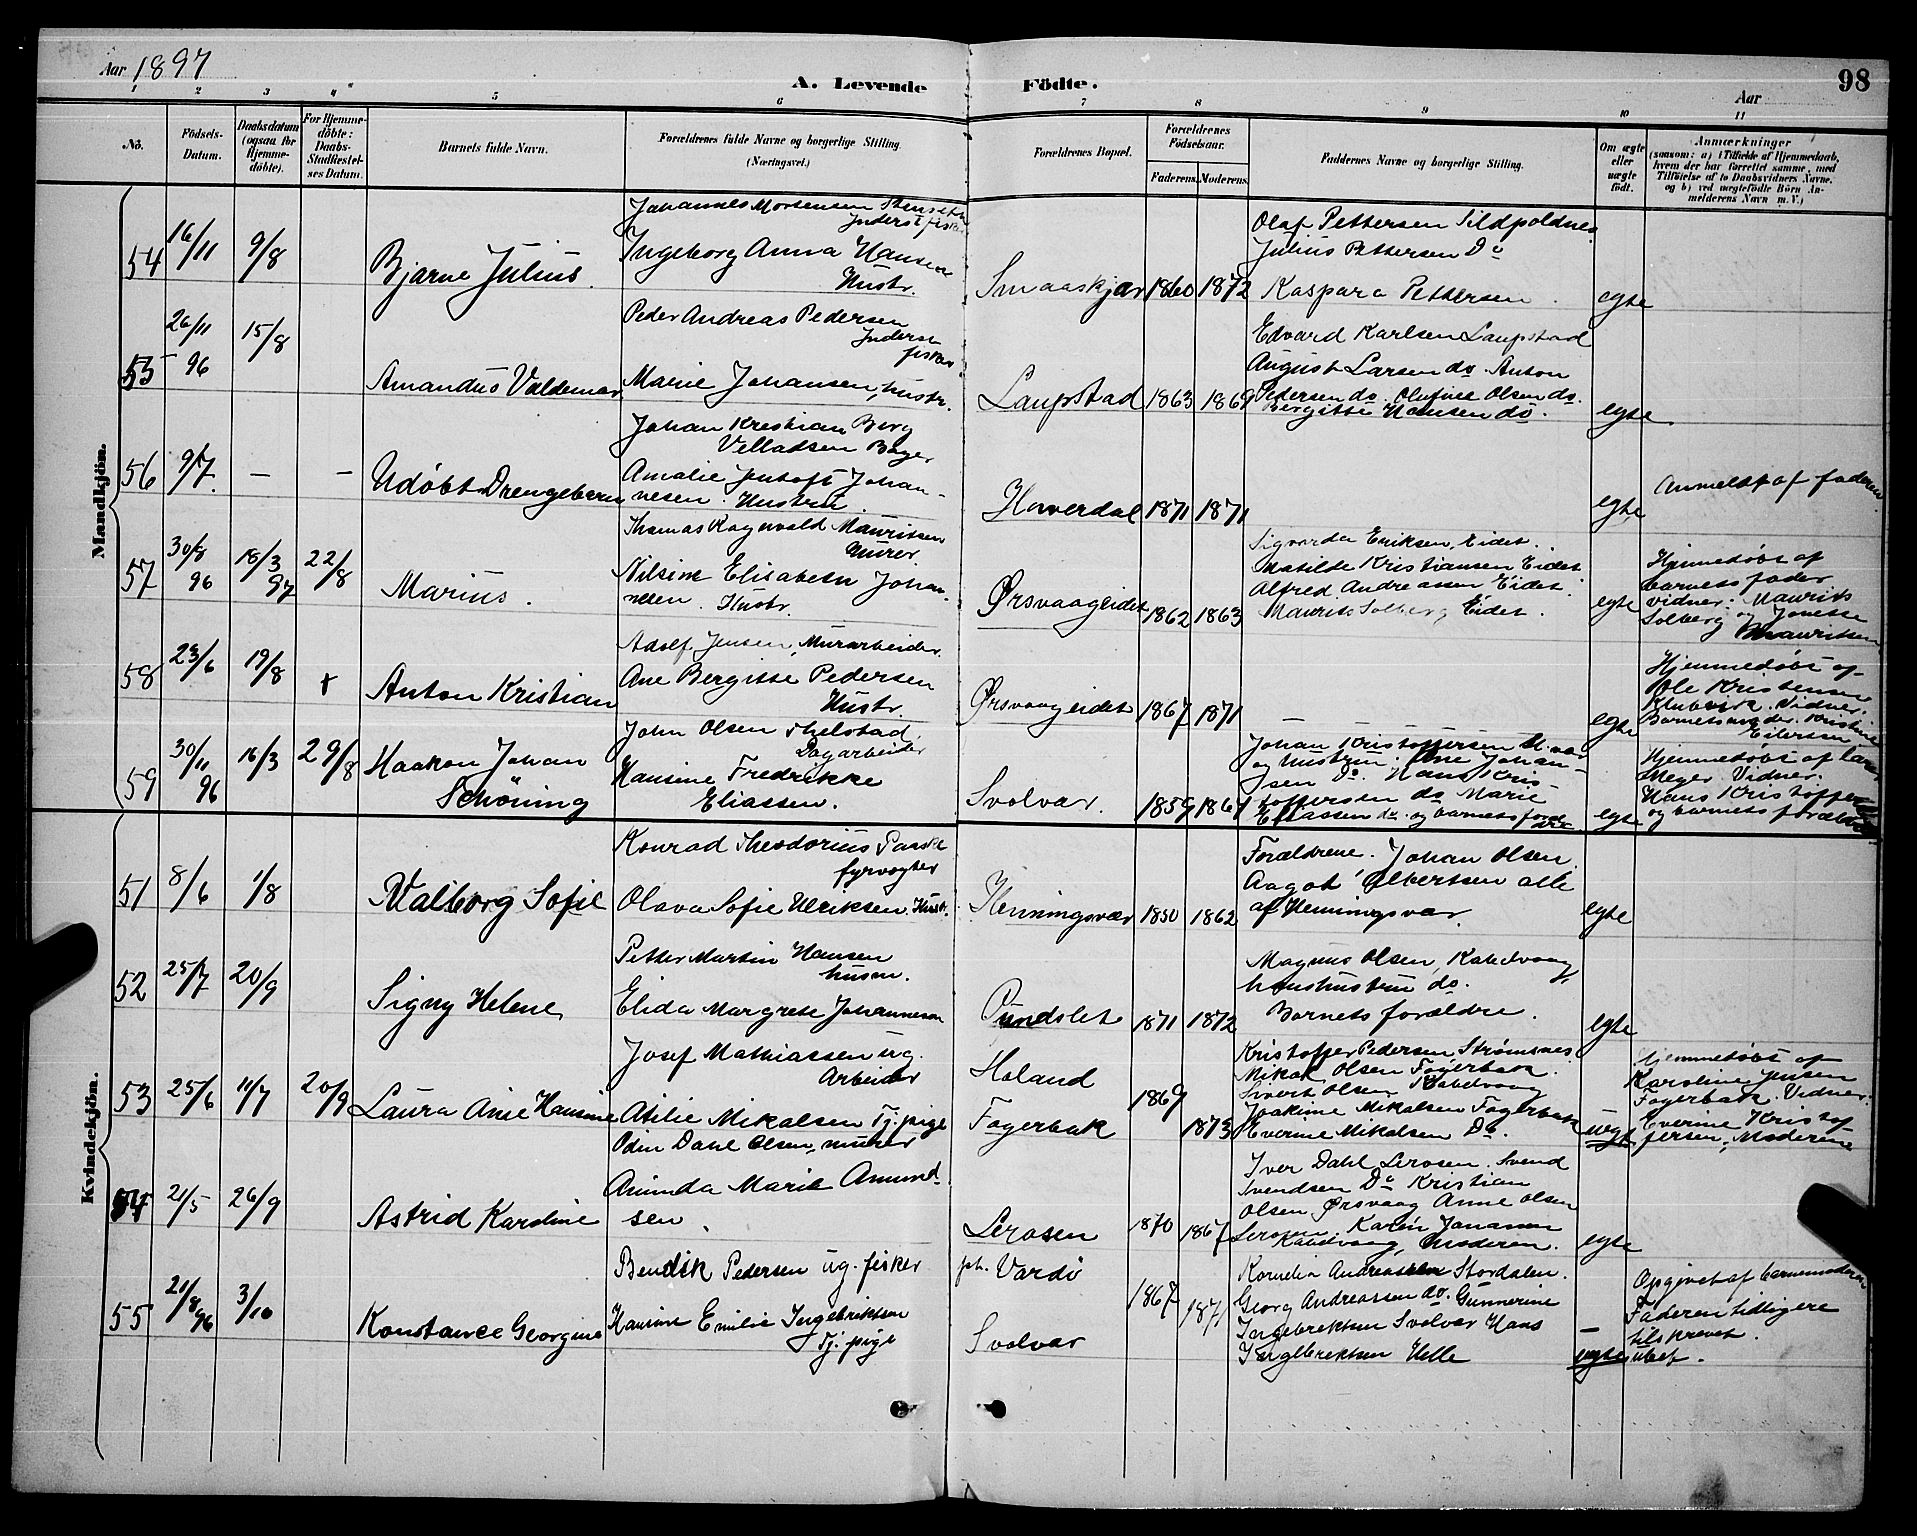 Aar 1897
A. Levende Födte.
Aar
98
1 2 3 4 5 6 7 8 9 10 11
No.
Födsels-Datum.
Daabsdatum (ogsaa for Hjemme-döbte).
For Hjemme-döbte: Daabs-Stadfæstel-ses Datum.
Barnets fulde Navn.
Forældrenes fulde Navne og borgerlige Stilling. (Næringsvei.)
Forældrenes Bopæl.
Forældrenes Födselsaar.
Faderens. Moderens.
Faddernes Navne og borgerlige Stilling.
Om ægte eller uægte födt.
Anmærkninger
(saasom: a) i Tilfælde af Hjemmedaab,
hvem der har forrettet samme, med
Tilföielse af to Daabsvidners Navne,
og b) ved uægtefödte Börn An-
melderens Navn m. V.)
Mandkjön.
54 16/11 9/8 Bjarne Julius.
Johannes Mortensen
Inderst fisker
Ingeborg Anna Hansen
Hustr.
Smaaskjær 1860 1872
Olaf Pettersen Sildpoldnes
Julius Pettersen Do
Kaspara Pettersen.
egte
55 26/11 96 15/8 Amandus Valdemar
Peder Andreas Pedersen
Inderst
fisker
Marie Johansen, hustr.
Laupstad 1863 1869
Edvard Karlsen Laupstad
August Larsen do. Anton
Pedersen do. Olufine Olsen do.
Bergitte Hansen do.
egte
56 9/7. – – Udøbt Drengebarn
Johan Kristian Berg
Velladsen Bager
Amalie Jentoft Johan-
nesen. Hustru
Hoverdal 1871 1871
egte
Anmeldt af faderen
57 30/8 96 18/3 97 22/8 Marius.
Thomas Ragnvald Mauritsen
Murer
Nilsine Elisabeth Johan-
nesen. Hustr.
Ørsvaageidet 1862 1863
Sigvarda Eriksen, Eidet.
Matilde Kristiansen Eidet
Alfred Andreassen Eidet.
Maurits Solberg, Eidet.
egte
Hjemmedøbt af
barnets fader
vidner: Maurits
Solberg og Jonette
Mauritsen
58 23/6 19/8 + Anton Kristian
Adolf Jensen, Murarbeider.
Ane Bergitte Pedersen
Hustr.
Ørsvaageidet 1867 1871
–
egte
Hjemmedøbt af
Ole Kristensen
Klubvik. Vidner.
Barnets moder. Kristine
Eilertsen
59 30/11 96 16/3 29/8 Haakon Johan
Schöning
John Olsen
Dagarbeider
Hansine Fredrikke
Eliassen.
Svolvær. 1859 1861
Johan Kristoffersen
og hustru. Ane Johan-
sen Do. Hans Kris-
toffersen do. Marie
Eliassen do. og barnets forældre
egte
Hjemmedøbt af
Meyer. Vidner.
Hans Kristoffersen
og barnets forældre
Kvindekjön.
51 8/6 1/8 Valborg Sofie
Konrad Theodorius Paaske
fyrvogter
Olava Sofie Ulriksen. Hustr.
Henningsvær 1850 1862
Forældrene. Johan Olsen.
Aagot Albertsen alle
af Henningsvær.
egte
52 25/7 20/9 Signy Helene
Petter Martin Hansen
husm.
Elida Margrete Johannesen
Pundslet 1871 1872
Magnus Olsen, Kabelvaag,
hans hustru do.
Barnets forældre.
egte
53 25/6 11/7 20/9 Laura Anie Hansine
Josef Mathiassen ug.
Arbeider
Atilie Mikalsen Tj. pige
Holand
Fagerbak 1869 1873
Kristoffer Pedersen Strømsnes
Mikal Olsen Fagerbak.
Sivert Olsen Kabelvaag
Joakime Mikalsen Fagerbak
Everine Mikalsen Do.
uegte
Hjemmedøbt af
Karoline Jensen
Fagerbak. Vidner.
Everine Kristof-
fersen, Moderene
54 21/5 26/9 Astrid Karoline
Odin Dahl Olsen, murer
Aminda Marie Amund-
sen.
Lerosen 1870 1867
Iver Dahl Lerosen. Svend
Svendsen Do Kristian
Olsen Ørsvaag Anne Olsen
Lerosen Karen Jonassen
Kabelvaag, Moderen.
egte
55 21/8 96 3/10 Konstance Georgine
Bendik Pedersen ug. fisker
Hansine Emilie Ingebriktsen
Tj. pige
pt. Vardö
Svolvær 1867 1871
Kornelia Andreassen Stordalen.
Georg Andreassen do. Gunnerine
Ingebrektsen Svolvær Hans
Ingebrektsen Helle
uegte
Opgivet af barnemoderen
Faderen tidligere